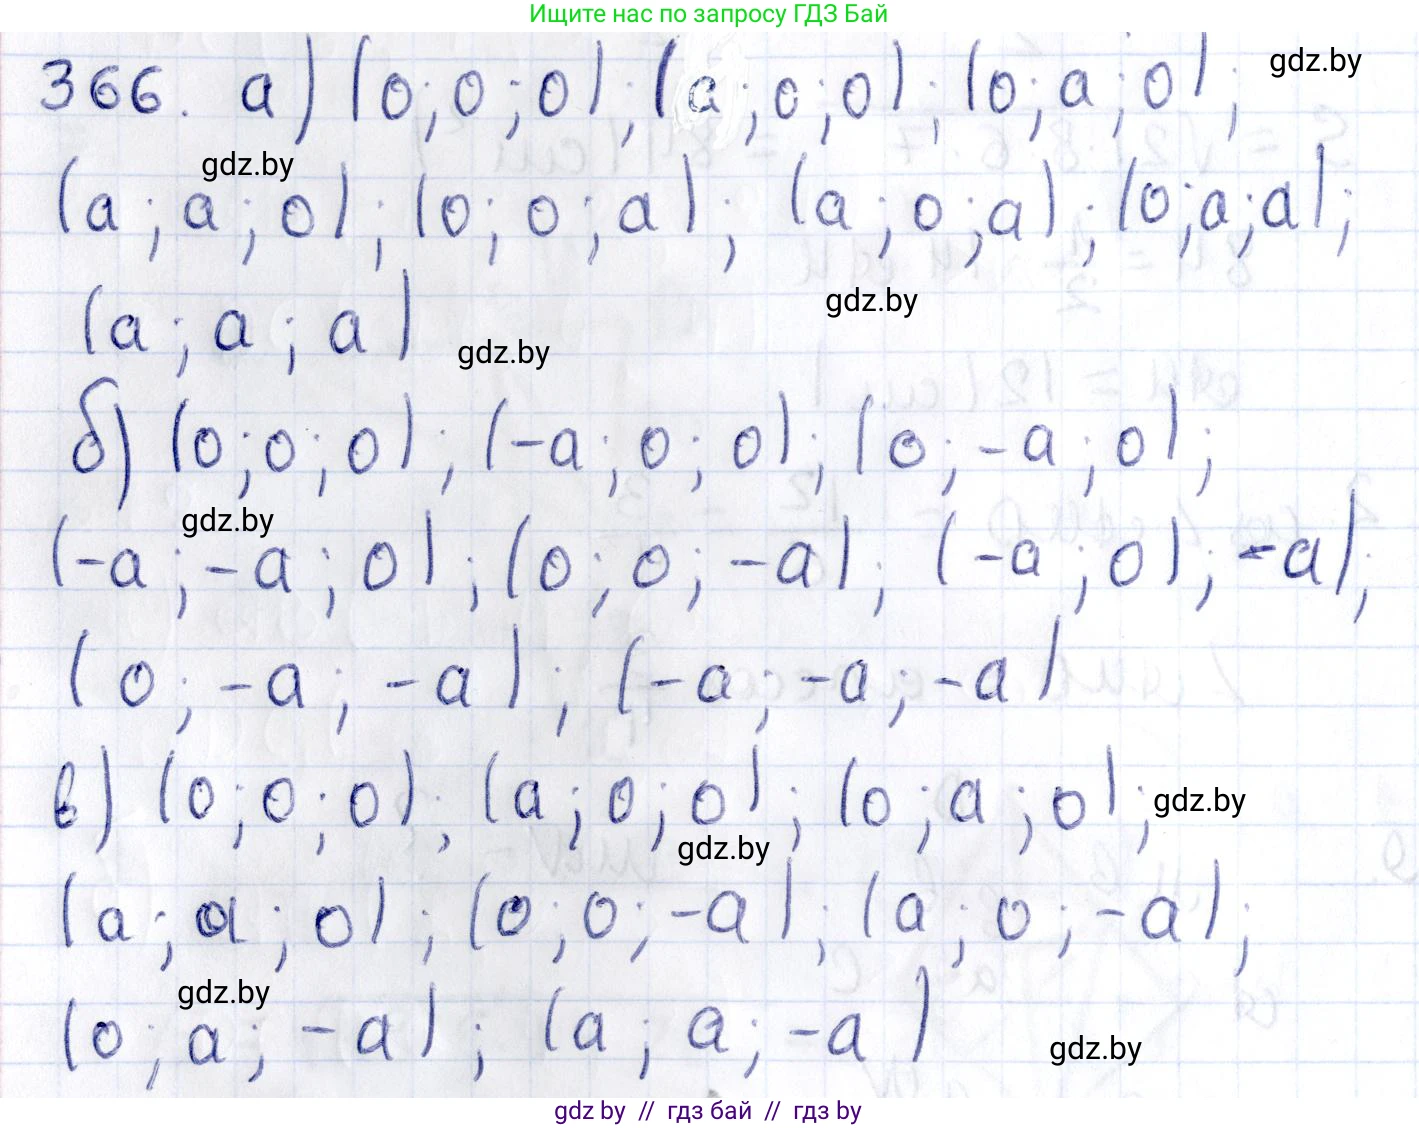 Ищите нас по запросу ГДЗ Бай
366. а) (0; 0; 0); (а; 0; 0); (0; а; 0); gdz.by
gdz.by
(а; а; 0); (0; 0; а); (а; 0; а); (0; а; а);
(а; а; а) gdz.by gdz.by
б) (0; 0; 0); (-а; 0; 0); (0; -а; 0);
gdz.by
(-а; -а; 0); (0; 0; -а); (-а; 0); -а);
(0; -а; -а); (-а; -а; -а)
в) (0; 0; 0); (а; 0; 0); (0; а; 0); gdz.by
gdz.by
(а; а; 0); (0; 0; -а); (а; 0; -а);
gdz.by
(0; а; -а); (а; а; -а) gdz.by
gdz by // гдз бай // гдз by